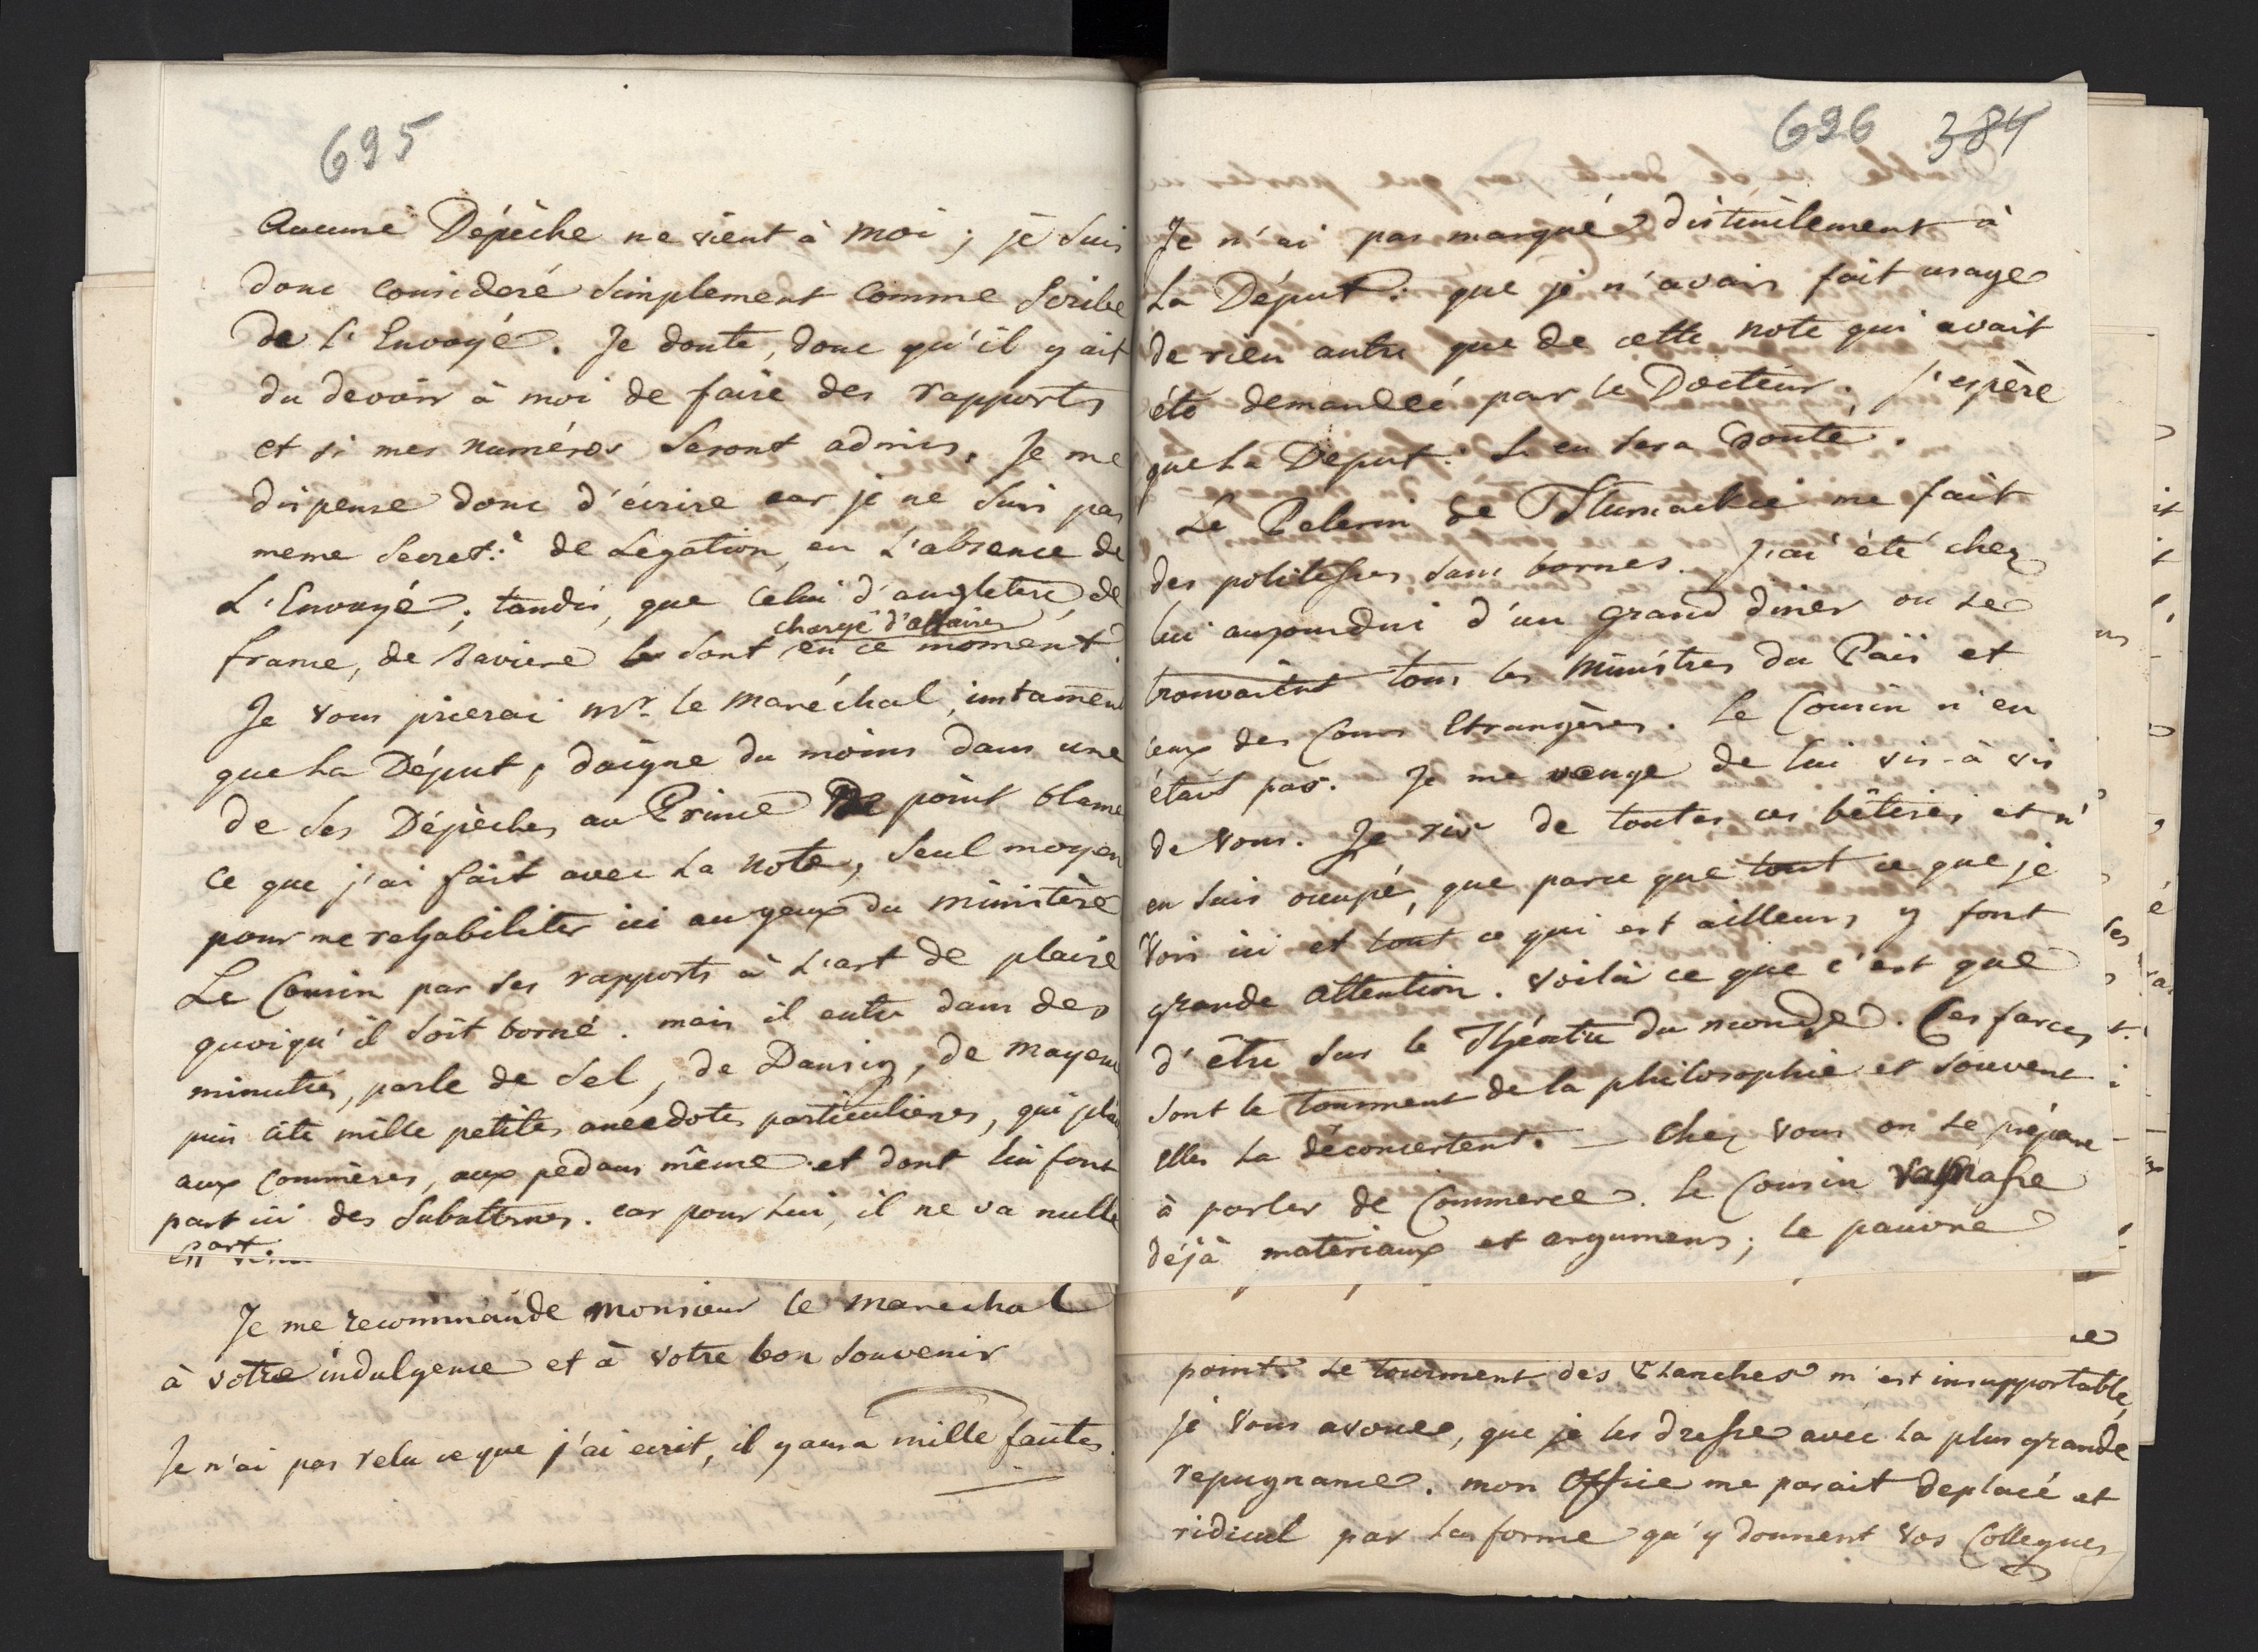 695
Aucune Dépêche ne vient à moi ; je suis
donc consideré simplement comme Scribe
de l'Envoyé. Je doute, donc qu'il y ait
du devoir à moi de faire des rapports
et si mes numéros seront admis. Je me
dispense donc d'écrire car je ne suis pas
meme Secret: de Legation, en L'absence de
L'Envoyé ; tandis, que celui d'angleterre, de
chargé d'affaires
france, de Baviere le sont en ce moment.
Je vous prierai mr. le maréchal, instament
que La Déput, daigne du moins dans une
de ses Dépêches au Prince point blame
ce que j'ai fait avec La note, seul moyen
pour me rehabiliter ici au yeux du ministère
Le Cousin par ses rapports à L'art de plaire
quoiqu'il soit borné. mais il entre dans des
minuties, parle de Sel, de Danzig, de mayence
puis cite mille petites anecdotes particulieres, qui plai
aux Commères, aux pedans même et dont lui font
part ici des Subalternes. car pour Lui, il ne va nulle
part.
Je me recommande monsieur le marechal
à votre indulgence et à votre bon souvenir
Je n'ai pas relu ce que j'ai ecrit, il y aura mille fautes.
696 384
Je n'ai pas marqué distinctement à
La Déput: que je n'avais fait usage
de rien autre que de cette note qui avait
été demandée par le Docteur. j'espère
que La Deput: S'en sera douté.
Le Pelerin de me fait
des politesses sans bornes. J'ai été chez
lui aujourdui d'un grand diner ou se
trouvaient tous les Ministres du Païs et
ceux des Cours Etrangères. Le Cousin n'en
était pas. Je me venge de lui vis-à vis
de vous. Je ris de toutes ces bêtises et n'
en suis occupé, que parce que tout ce que je
vois ici et tout ce qui est ailleurs y font
grande attention. voilà ce que c'est que
d'être sur le Théatre du monde. Ces farces
sont le tourment de la philosophie et souvent
elles La déconcertent. — Chez vous on se prépare
à parler de Commerce. Le Cousin ramasse
déjà materiaux et argumens ; le pauvre
point. Le tourment des m'est insupportable,
je vous avoue, que je les dresse avec la plus grande
repugnance. mon Office me parait deplacé et
ridicul par La forme qu'y donnent vos Collegues